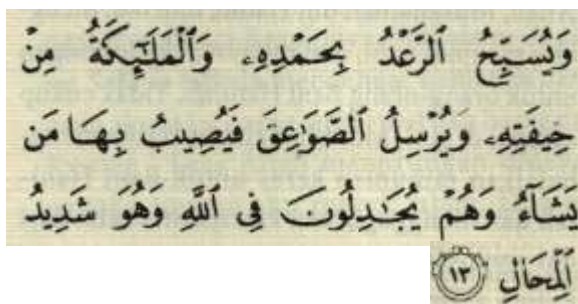 وَيُسَبِّحُ ٱلرَّعْدُ بِحَمْدِهِۦ وَٱلْمَلَٰٓئِكَةُ مِنْ
خِيفَتِهِۦ وَيُرْسِلُ ٱلصَّوَٰعِقَ فَيُصِيبُ بِهَا مَن
يَشَآءُ وَهُمْ يُجَٰدِلُونَ فِى ٱللَّهِ وَهُوَ شَدِيدُ
ٱلْمِحَالِ ١٣